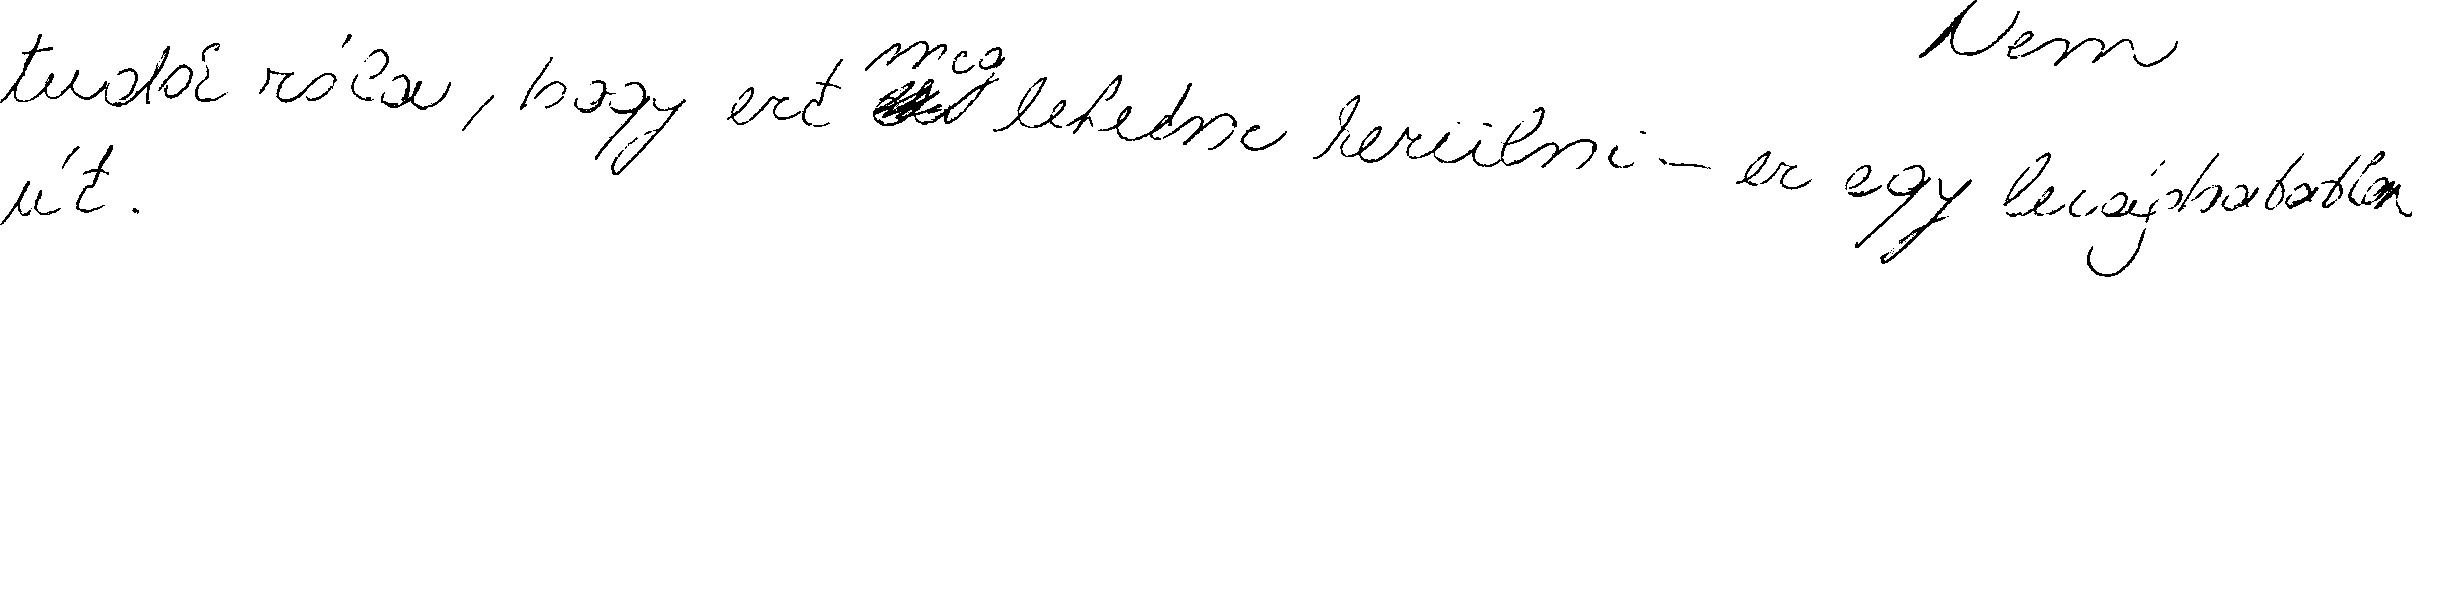 Nem
tudok róla, hogy ezt meg lehetne kerülni – ez egy levághatatlan
út.